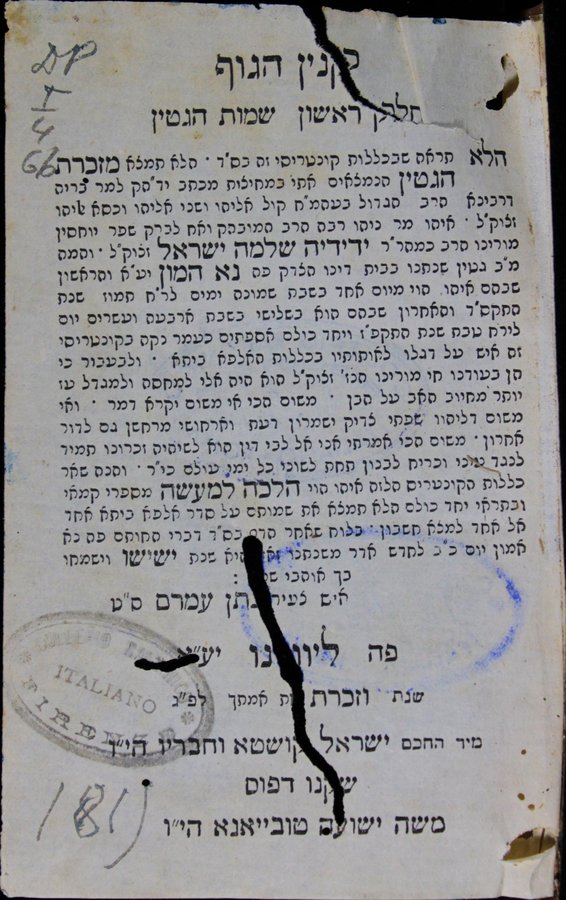 DP
I
4
66
קנין הגוף
חלק ראשון שמות הגטין
הלא תראה שבכללות קונטריסי זה בס"ד · הלא תמלא מזכרת
הגטין הנמצאים אתי במחיצות מכתב יד"הק למר בריה
דרבינא הרב הגדול בעהמ"ח קול אליהו ושני אליהו וכסא אליהו
זלוק"ל · איהו מר ניהו רבה הרב המובהק ואח לברק שפר יוחסין
מורינו הרב כמהר"ר ידידיה שלמה ישראל זלוק"ל · והמה
מ"ב גטין שנתנו בבית דינו הצדק פה נא המון יע"א והראשון
שבהם איהו הוי מיום אחד בשבת שמונה ימים לר"ח תמוז שנת
התקס"ד והאחרון שבהם הוא בשלישי בשבת ארבעה ועשרים יום
לירח טבת שנת התקפ"ז ויחד כולם אספתים כעמר נקה בקונטריסי
זה איש על דגלו לאותותיו בכללות האלפא ביתא · ולבעבור כי
הן בעודנו חי מורינו הנז' זלוק"ל הוא היה אלי למחסה ולמגדל עז
יותר מחיוב האב על הבן · משום הכי אי משום יקרא דמר · ואי
משום דליהוו שפתי צדיק ישמרון דעת וארחושי מרחשן גם לדור
אחרון · משום הכי אמרתי אני אל לבי דין הוא לשיהיה זכרונו תמיד
לנגד עיני וכריח לבנון תחת לשוני כל ימי עולם כי"ר · והנה שאר
כללות הקונטריס הלזה איהו הוי הלכה למעשה מספרי קמאי
ובתראי יחד כולם הלא תמצא את שמותם על סדר אלפא ביתא אחד
אל אחד למצא חשבון · בלוח שאחר הדם בס"ד דברי החותם פה נא
אמון יום כ"ב לחדש אדר משנתנו זאת היא שנת ישישו וישמחו
בך אוהבי :
איש צעיר נתן עמרם ס"ט
פה ליוורנו יע"א
שנת וזכרת את אמתך לפ"ג
מיד החכם ישראל קושטא וחבריו הי"ו
שקנו דפוס
משה ישועה טובייאנא הי"ו
ITALIANO
FIRENZE
(81)